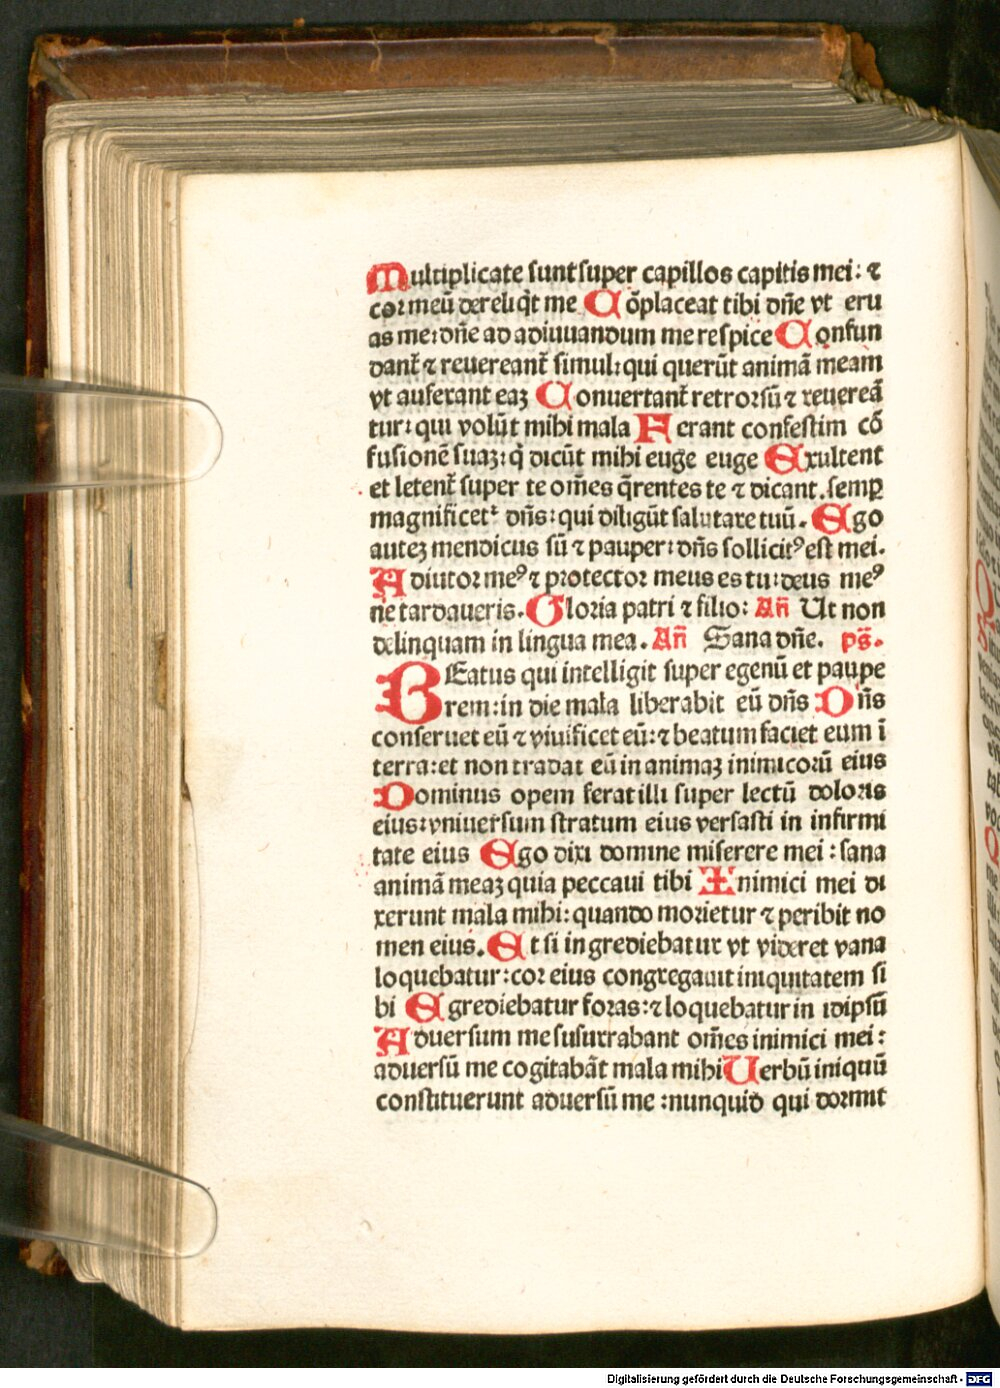 Multiplicate sunt super capillos capitis mei: ⁊
cor meū dereliq̄t me Cōplaceat tibi dn̄e vt eru
as me: dn̄e ad adiuuandum me respice Confun
dant̄ ⁊ reuereant̄ simul: qui querūt animā meam
vt auferant eaꝫ Conuertant̄ retrorsū ⁊ reuereā
tur: qui volūt mihi mala Ferant confestim cō
fusionē suaꝫ: q̄ dicūt mihi euge euge Exultent
et letent̄ super te om̄es q̄rentes te ⁊ dicant semꝑ
magnificetᵗ dn̄s: qui diligūt salutare tuū. Ego
auteꝫ mendicus sū ⁊ pauper: dn̄s sollicitꝰ est mei.
Adiutor meꝰ ⁊ protector meus es tu: deus meꝰ
ne tardaueris. Gloria patri ⁊ filio: An̄ Ut non
delinquam in lingua mea. An̄ Sana dn̄e. ps̄.
BEatus qui intelligit super egenū et paupe
rem: in die mala liberabit eū dn̄s Dn̄s
conseruet eū ⁊ viuificet eū: ⁊ beatum faciet eum ī
terra: et non tradat eū in animaꝫ inimicorū eius
Dominus opem ferat illi super lectū doloris
eius: vniuersum stratum eius versasti in infirmi
tate eius Ego dixi domine miserere mei: sana
animā meaꝫ quia peccaui tibi Inimici mei di
xerunt mala mihi: quando morietur ⁊ peribit no
men eius. Et si ingrediebatur vt videret vana
loquebatur: cor eius congregauit iniquitatem si
bi Egrediebatur foras: ⁊ loquebatur in idipsū
Aduersum me susurrabant om̄es inimici mei:
aduersū me cogitabāt mala mihi Uerbū iniquū
constituerunt aduersū me: nunquid qui dormit
Digitalisierung gefördert durch die Deutsche Forschungsgemeinschaft - DFG